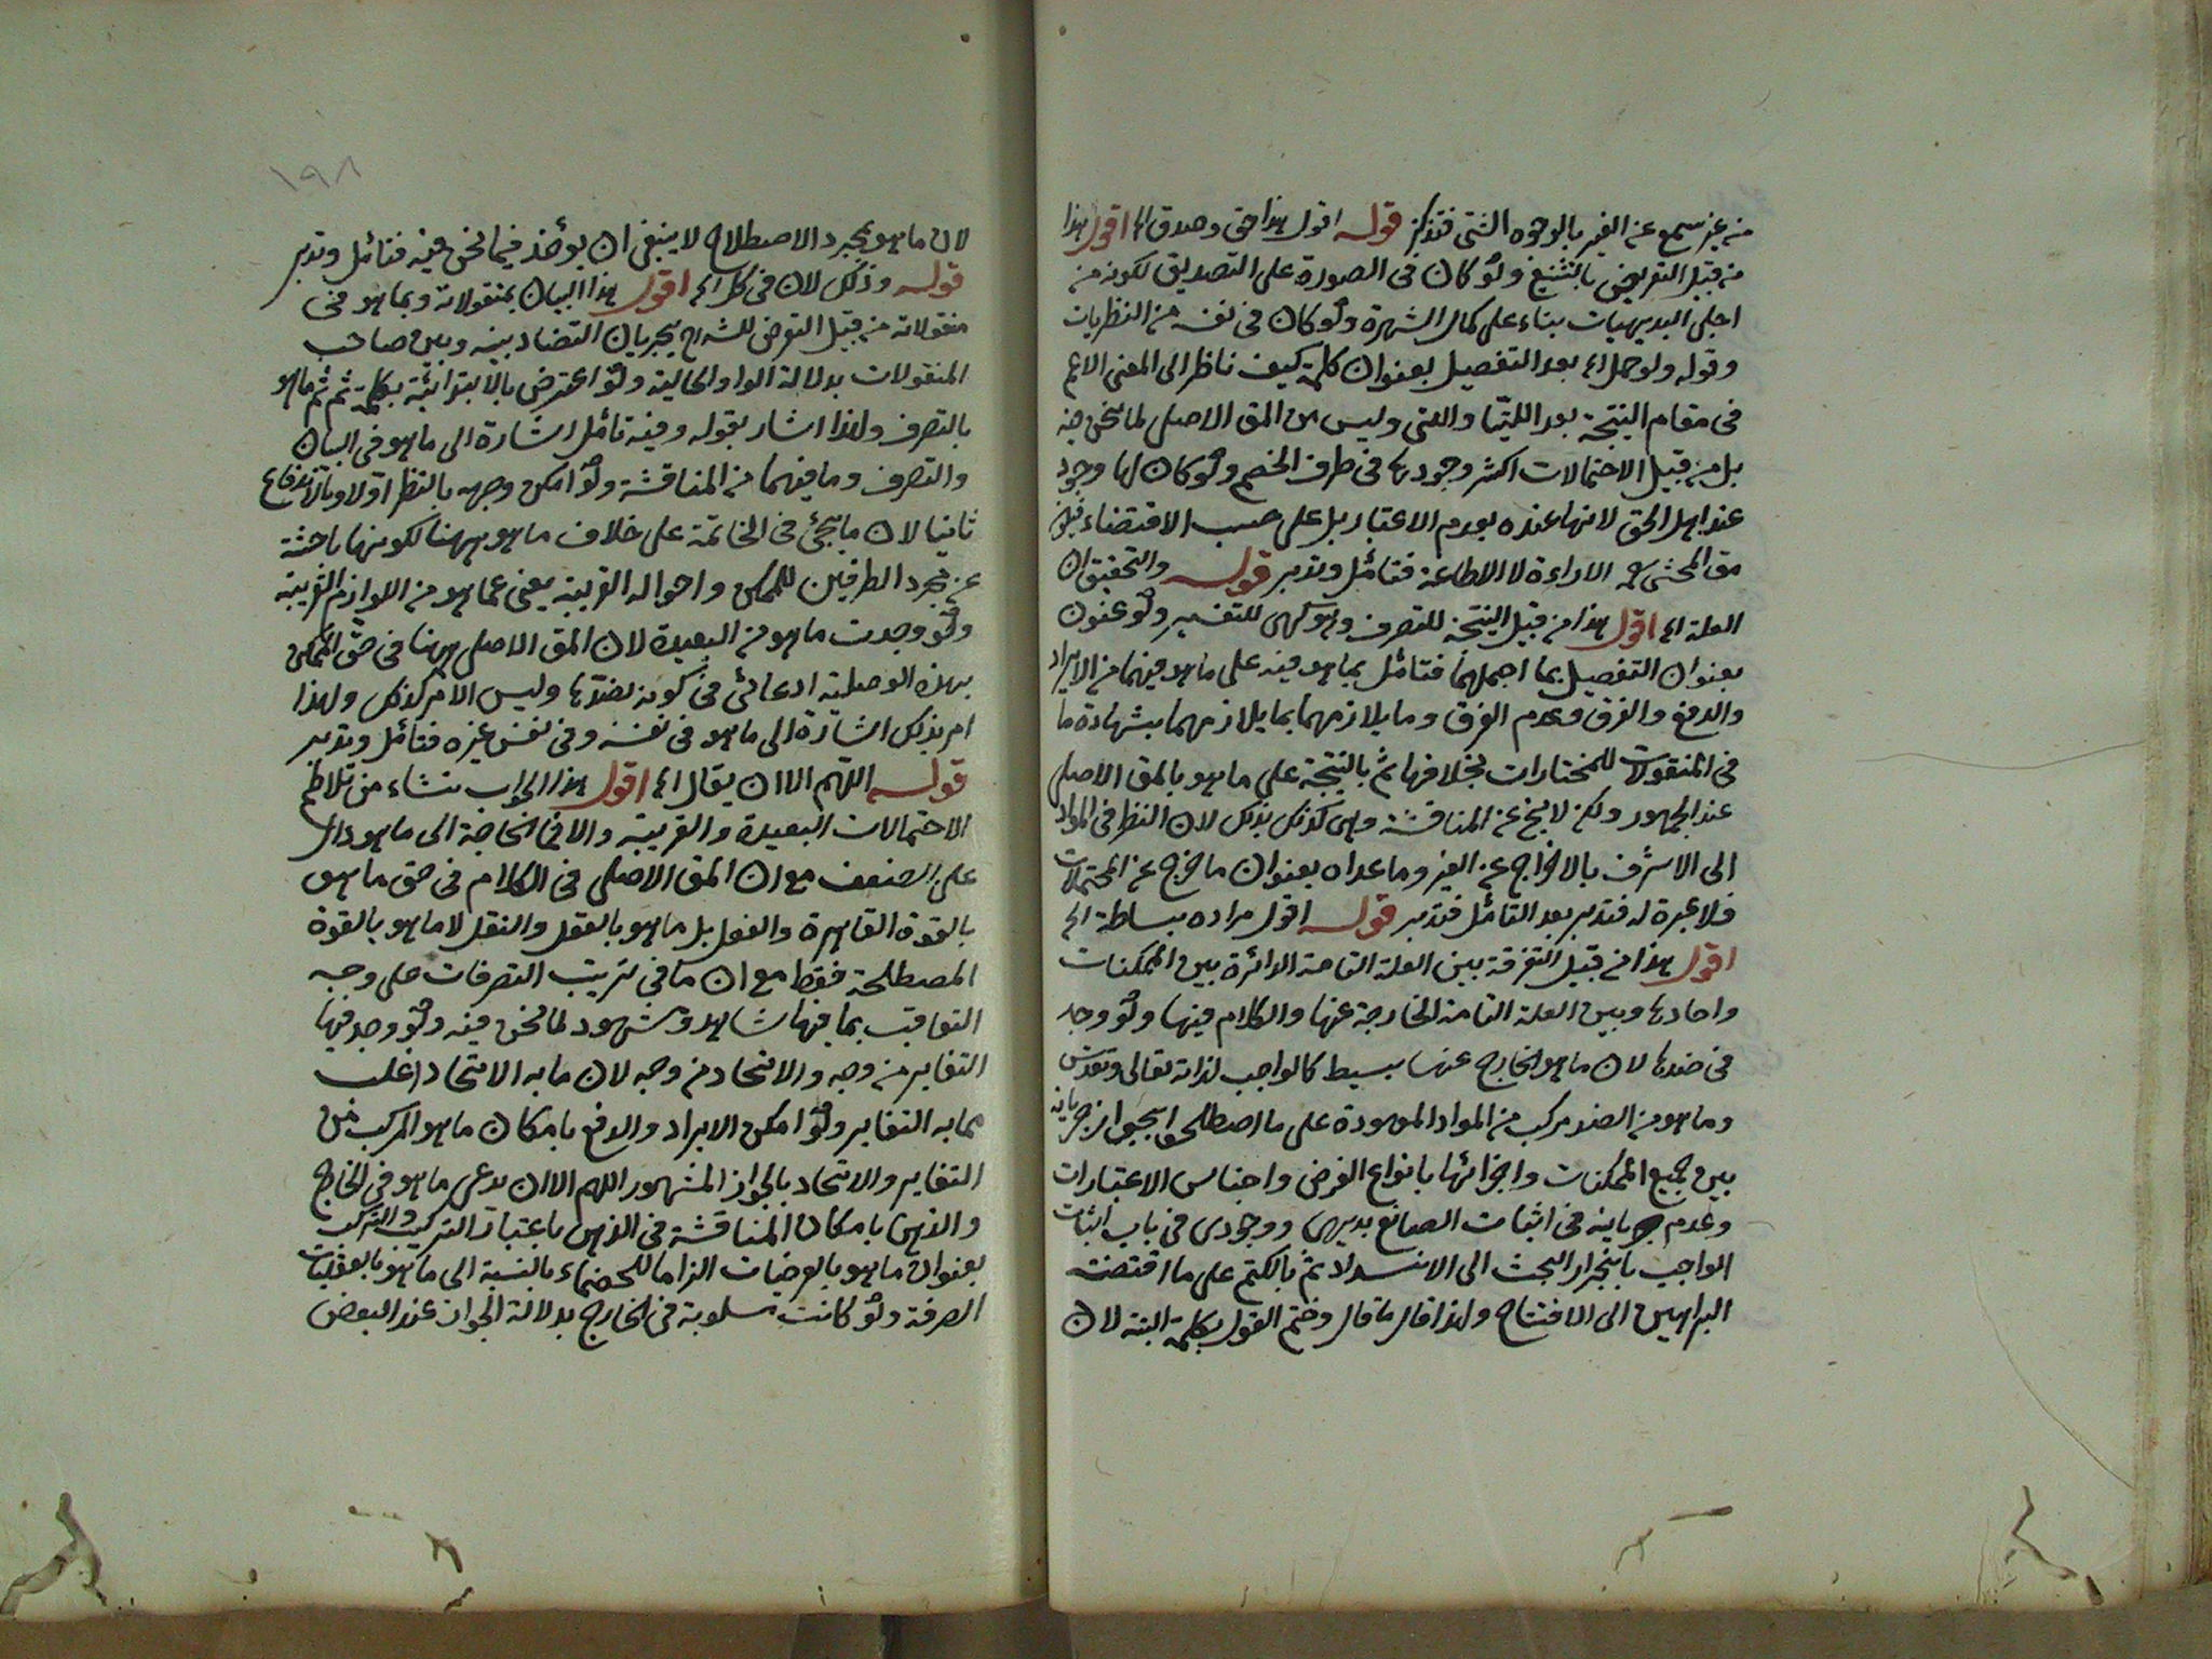 من غير سمع عن الغير بالوجوه الشتى فتذكر قوله اقول هذا حق وصدق الخ اقول هذا
من قبيل التعريض بالتشنيع ولو كان فى الصورة على التصديق لكونه من
اجلى البديهيات بناء على كمال الشهرة ولو كان فى نفسه من النظريات
وقوله ولو حمل الخ بعد التفصيل بعنوان كلمة كيف ناظر الى المعنى الاعم
فى مقام النتيجة بعد اللتيا والتى وليس من المق الاصلى لما نحن فيه
بل من قبيل الاحتمالات اكثر وجودها فى طرف الخصم ولو كان لها وجود
عند اهل الحق لانها عنده بعدم الاعتبار بل على حسب الاقتضاء
مق المحشى الاراءة لا الاطاعة فتأمل وتدبر قوله والتحقيق ان
العلة الخ اقول هذا من قبيل النتيجة للتصرف وهو كهى للتفسير ولو عنون
بعنوان التفصيل بما اجملهما فتأمل بما هو فيه على ما هو فيهما من الايراد
والدفع والفرق وعدم الفرق وما يلازمهما بما يلازمهما بشهادة ما
فى المنقولات للمختارات بخلافها ثم بالنتيجة على ما هو بالمق الاصلى
عند الجمهور ولكن لا يخ عن المناقشة وهى كذلك بذلك لان النظر فى المواد
الى الاشرف بالاخراج عن الغير وما عداه بعنوان ما خرج عن المحتملات
فلا عبرة له فتدبر بعد التأمل فتدبر قوله اقول مراده ببساطة الخ
اقول هذا من قبيل التفرقة بين العلة التامة الدائرة بين الممكنات
واحادها وبين العلة التامة الخارجة عنها والكلام فيها ولو وجد
فى ضدها لان ما هو الخارج عنها بسيط كالواجب لذاته تعالى وتقدس
وما هو من الضد مركب من المواد الموجودة على ما اصطلحوا بجواز جريانه
بين جميع الممكنات واجزائها بانواع الفرض واجناس الاعتبارات
وعدم جريانه فى اثبات الصانع بديهى ووجودى فى باب اثبات
الواجب بانجرار البحث الى الانسداد ثم بالكتم على ما اقتضت
البراهين الى الافتتاح ولهذا قال ما قال وختم القول بكلمة البتة لان
١٩٨
لان ما هو بمجرد الاصطلاح لا ينبغى ان يؤخذ فيما نحن فيه فتأمل وتدبر
قوله وذلك لان فى كل الخ اقول هذا البيان بمنقولاته وبما هو فى
منقولاته من قبيل التعرض للشراح بجريان التضاد بينه وبين صاحب
المنقولات بدلالة الواو الحالية ولو اعترض بالابتدائية بكلمة ثم ثم ما هو
بالتصرف ولهذا اشار بقوله وفيه تأمل اشارة الى ما هو فى البيان
والتصرف وما فيهما من المناقشة ولو امكن وجهه بالنظر اولا وبالاندفاع
ثانيا لان ما يجئ فى الخاتمة على خلاف ما هو ههنا لكونها باحثة
عن مجرد الطرفين للممكن واحواله القريبة يعنى عما هو من اللوازم القريبة
ولو وجدت ما هو من البعيدة لان المق الاصلى ههنا فى حق الممكن
بهذه الوصلية ادعائى فى كونه فضلاها وليس الامر كذلك ولهذا
امر بذلك اشارة الى ما هو فى نفسه وفى نفس غيره فتأمل وتدبر
قوله اللهم الا ان يقال الخ اقول هذا الجواب نشاء من تلاطم
الاحتمالات البعيدة والقريبة والا فالحاجة الى ما هو دال
على الضعف مع ان المق الاصلى فى الكلام فى حق ما هو
بالقوة القاهرة والفعل بل ما هو بالعقل والنقل لا ما هو بالقوة
المصطلحة فقط مع ان ما فى ترتيب التصرفات على وجه
التعاقب بما فيها شاهد وشهود لما نحن فيه ولو وجد فيها
التغاير من وجه والاتحاد من وجه لان ما به الاتحاد اغلب
مما به التغاير ولو امكن الايراد والدفع بامكان ما هو المركب من
التغاير والاتحاد بالجواز المشهور اللهم الا ان يدعى ما هو فى الخارج
والذهن بامكان المناقشة فى الذهن باعتبار التركيب والتركب
بعنوان ما هو بالفرضيات الزاما للخصماء بالنسبة الى ما هو بالعقليات
الصرفة ولو كانت مسلوبة فى الخارج بدلالة الجواز عند البعض